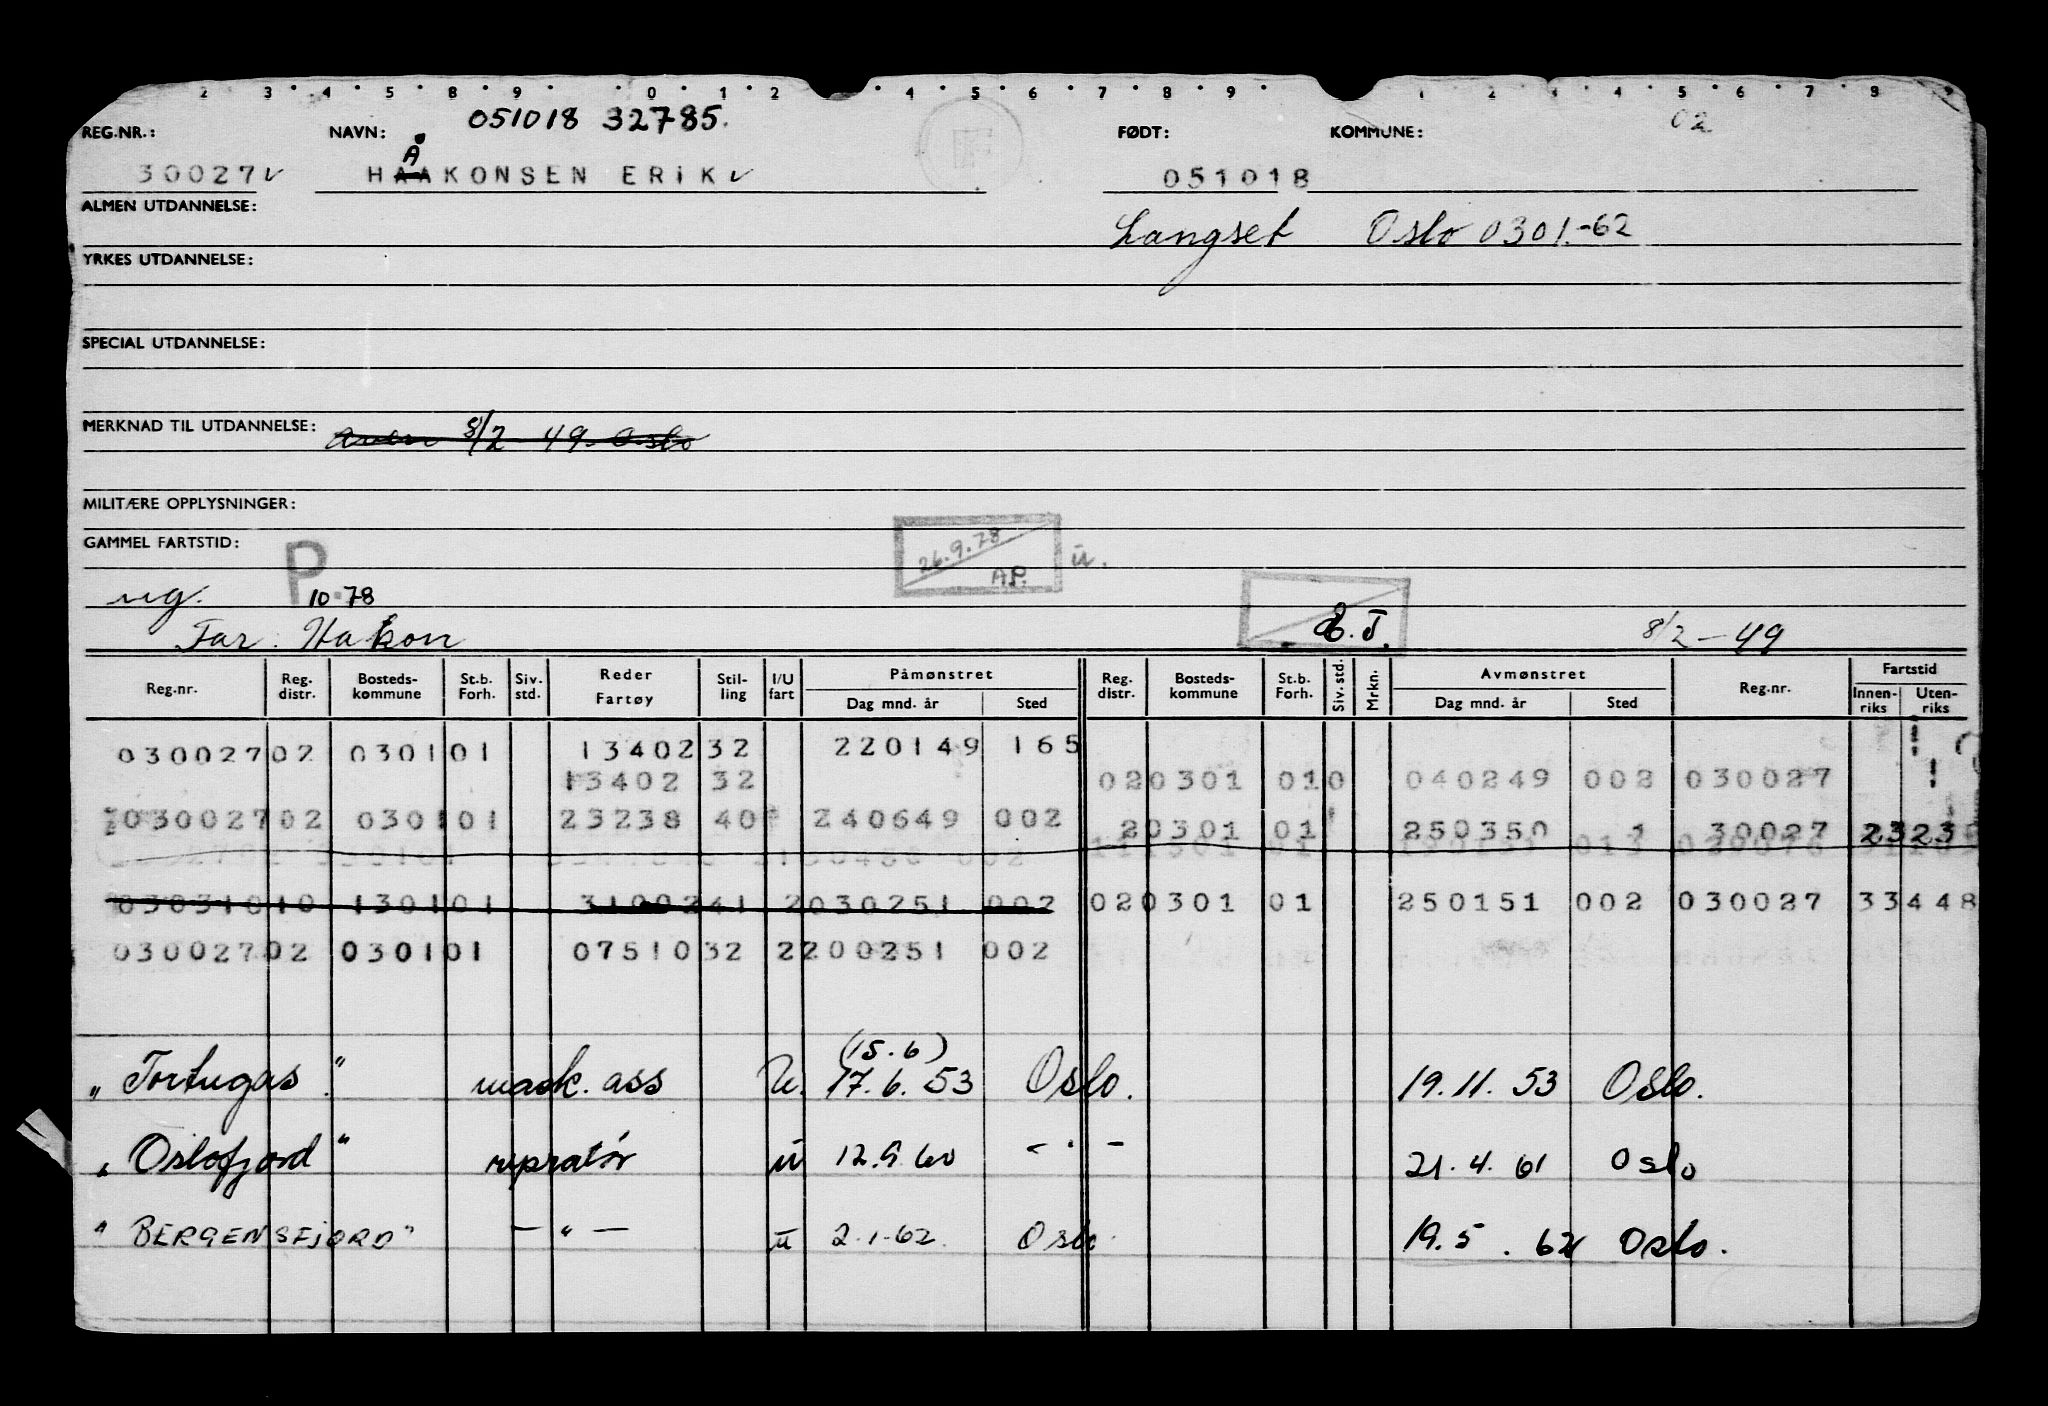 2 3 4 5 8 9 0 1 2 4 5 6 7 8 9 1 2 3 4 5 6 7 8
REG.NR.: NAVN: 051018 32785. FØDT: KOMMUNE: 02
Å
30027 HAAKONSEN ERIK 051018
ALMEN UTDANNELSE: Langset Oslo 0301.-62
YRKES UTDANNELSE:
SPECIAL UTDANNELSE:
MERKNAD TIL UTDANNELSE: 8/2 49 Oslo
MILITÆRE OPPLYSNINGER:
GAMMEL FARTSTID: P 26.9.78 AP. ū.
ug. 10-78
Far: Hakon 8/2-49
Reg.nr. Reg. distr. Bosteds-kommune St.b. Forh. Siv. std. Reder Fartøy Stil-ling I/U fart Påmønstret Dag mnd. år Sted Reg. distr. Bosteds-kommune St.b. Forh. Siv. std. Mrkn. Avmønstret Dag mnd. år Sted Reg.nr. Fartstid Innen-riks Uten-riks
030027 02 0301 01 13402 32 220149 165
13402 32 02 0301 010 040249 002 030027
030027 02 0301 01 23238 40 240649 002 20301 01 250350 1 30027 23 23
030310 10 1301 01 31002 41 2 030251 002 02 0301 01 250151 002 030027 33 448
030027 02 0301 01 07510 32 2 200251 002
(15.6)
"Tortugas" mask. ass U. 17.6.53 Oslo. 19.11.53 Oslo.
"Oslofjord" repratør ū 12.9.60 - " - 21.4.61 Oslo
"BERGENSFJORD" - " - ū 2.1.62 Oslo 19.5.62 Oslo.